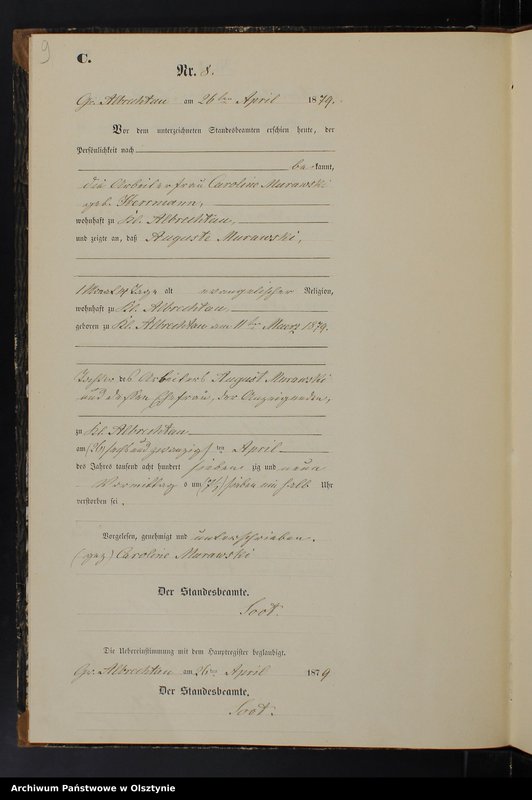 9
C.
Nr. 8.
Gr. Albrechtau am 26ten April 1879.
Vor dem unterzeichneten Standesbeamten erschien heute, der
Persönlichkeit nach
be kannt,
die Arbeiterfrau Caroline Murawski
geb. Herrmann,
wohnhaft zu Kl. Albrechtau,
und zeigte an, daß Auguste Murawski,
1 Monat Tage alt evangelischer Religion,
wohnhaft zu Kl. Albrechtau,
geboren zu Kl. Albrechtau am 11ten Maerz 1879.
Tochter des Arbeiters August Murawski
und dessen Ehefrau, der Anzeigenden,
zu Kl. Albrechtau
am (26) sechsundzwanzigsten April
des Jahres tausend acht hundert sieben zig und neun
Vormittag s um (7½) sieben ein halb Uhr
verstorben sei.
Vorgelesen, genehmigt und unterschrieben.
(gez) Caroline Murawski
Der Standesbeamte.
Toot.
Die Uebereinstimmung mit dem Hauptregister beglaubigt.
Gr. Albrechtau am 26ten April 1879
Der Standesbeamte.
Toot.
Archiwum Państwowe w Olsztynie